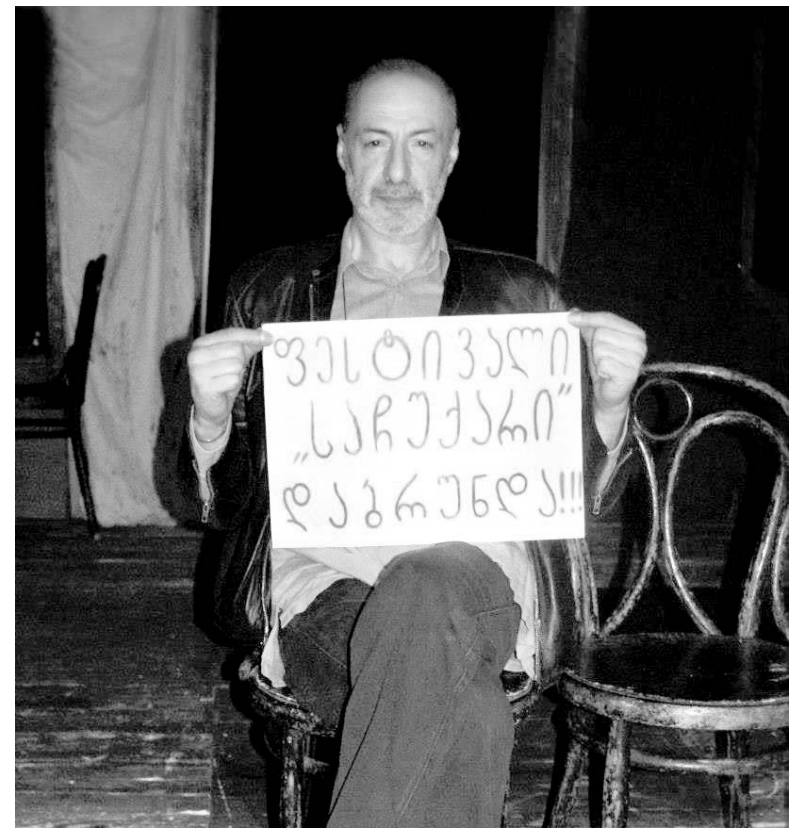 ფესტივალი
„საჩუქარი”
დაბრუნდა!!!